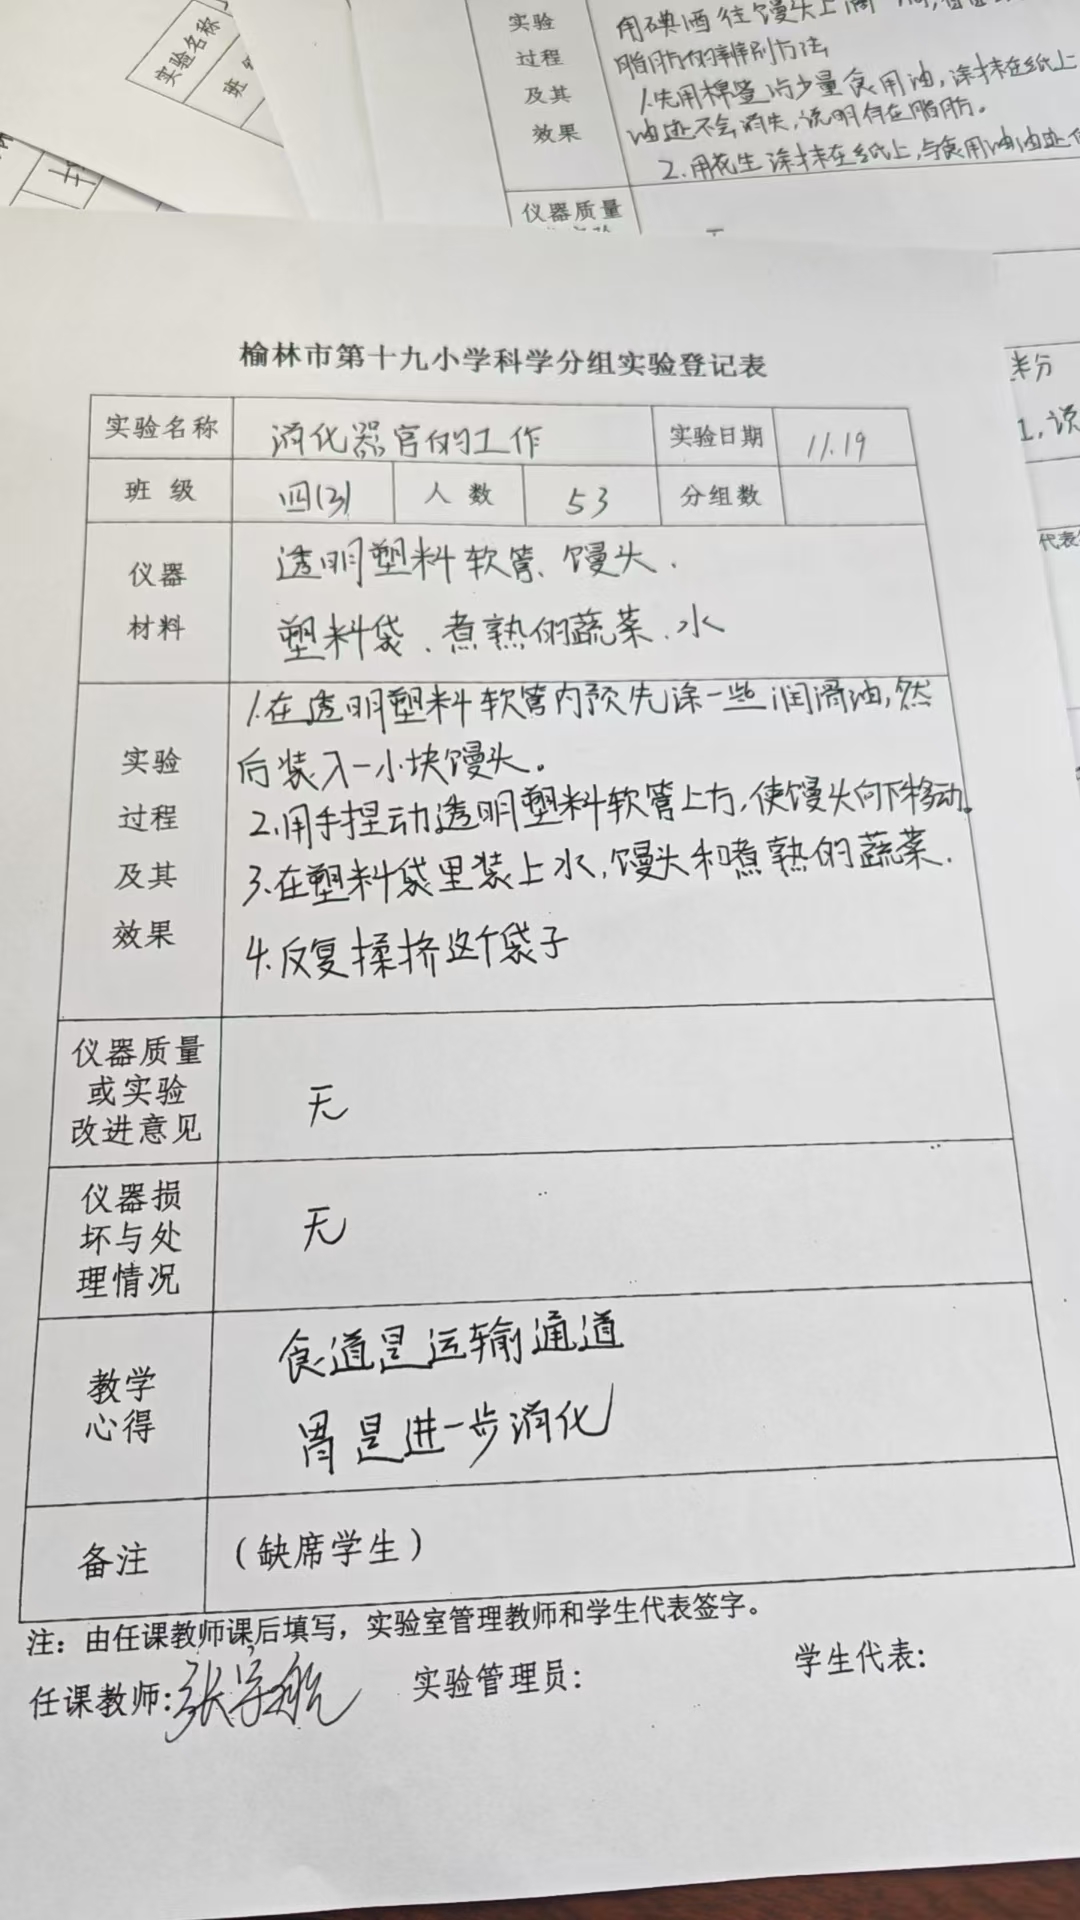 实验名称
班
实验
用碘酒往馒头上滴
过程
脂肪的辨别方法
及其
1.先用棉签沾少量食用油,涂抹在纸上
效果
油迹不会消失,说明存在脂肪。
2.用花生涂抹在纸上,与食用油油迹
仪器质量
无
半分
1.说
代表
榆林市第十九小学科学分组实验登记表
实验名称 消化器官的工作 实验日期 11.19
班 级 四(3) 人 数 53 分组数
仪器 透明塑料软管、馒头、
材料 塑料袋、煮熟的蔬菜、水
1.在透明塑料软管内预先涂一些润滑油,然
实验 后装入一小块馒头。
过程 2.用手捏动透明塑料软管上方,使馒头向下移动。
及其 3.在塑料袋里装上水,馒头和煮熟的蔬菜.
效果 4.反复揉挤这个袋子
仪器质量
或实验 无
改进意见
仪器损
坏与处 无
理情况
教学 食道是运输通道
心得 胃是进一步消化
备注 (缺席学生)
注:由任课教师课后填写,实验室管理教师和学生代表签字。
任课教师: 实验管理员: 学生代表: